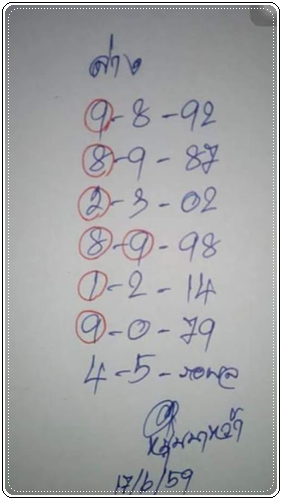 ล่าง
9-8-92
8-9-87
2-3-02
8-9-98
1-2-14
9-0-79
4-5-รอผล
17/6/59